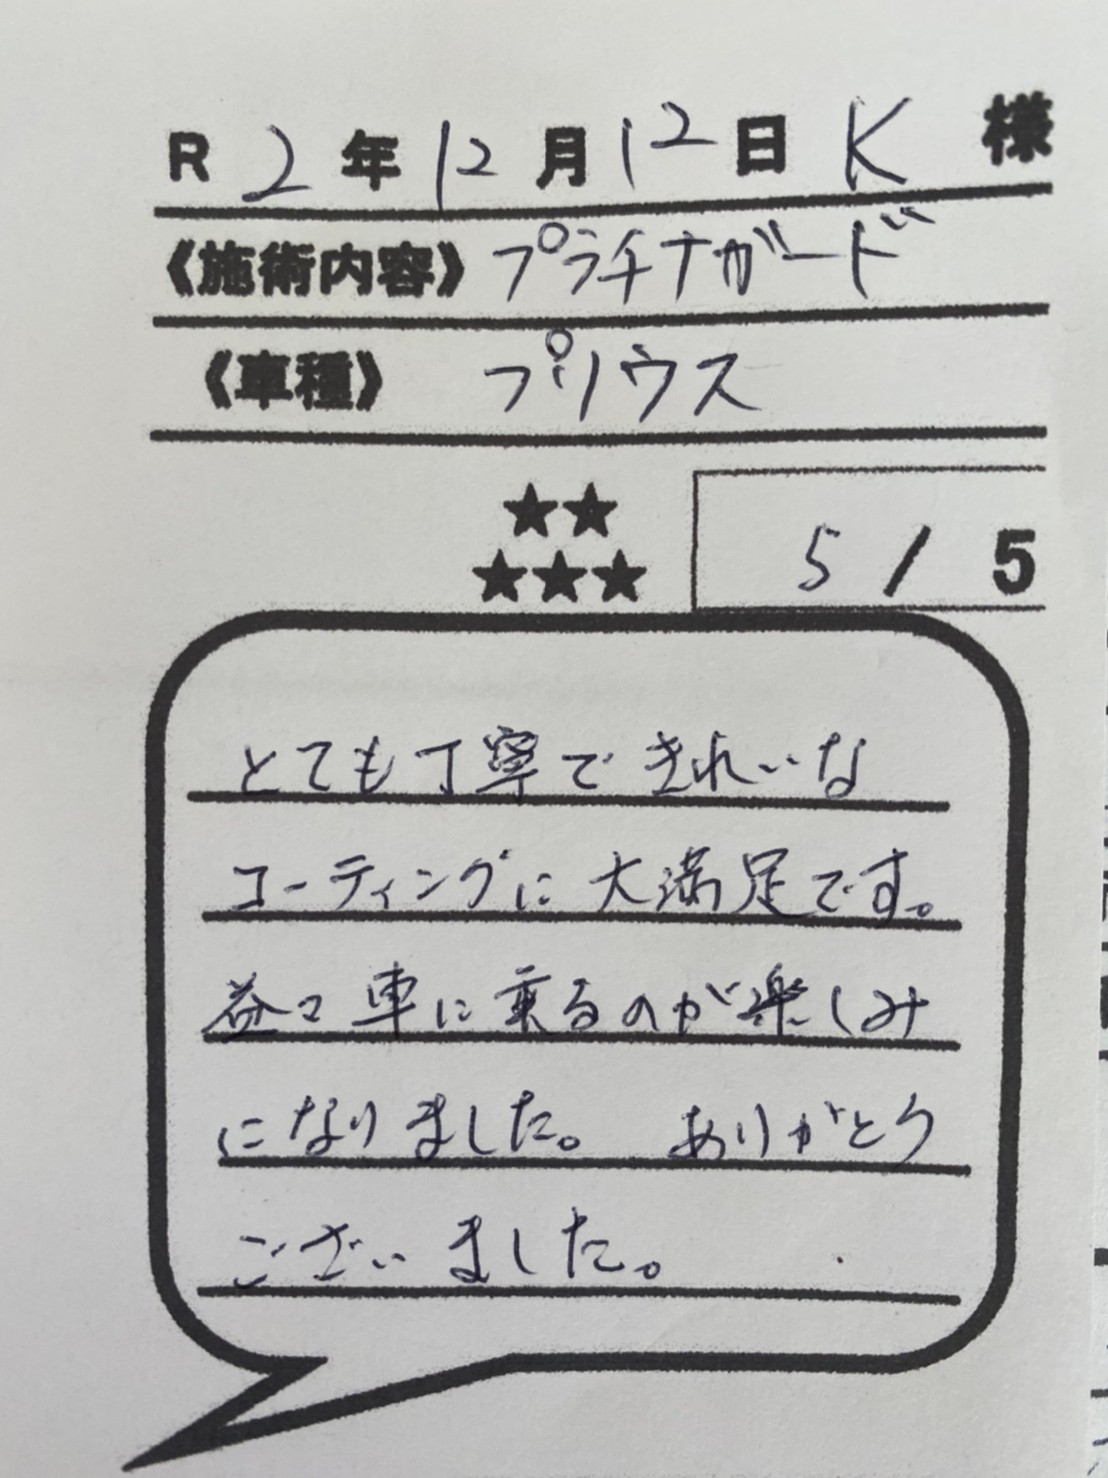 R 2年12月12日 K 様
《施術内容》プラチナガード
《車種》 プリウス
★★
★★★
5 / 5
とても丁寧できれいな
コーティングに大満足です。
益々車に乗るのが楽しみ
になりました。ありがとう
ございました。